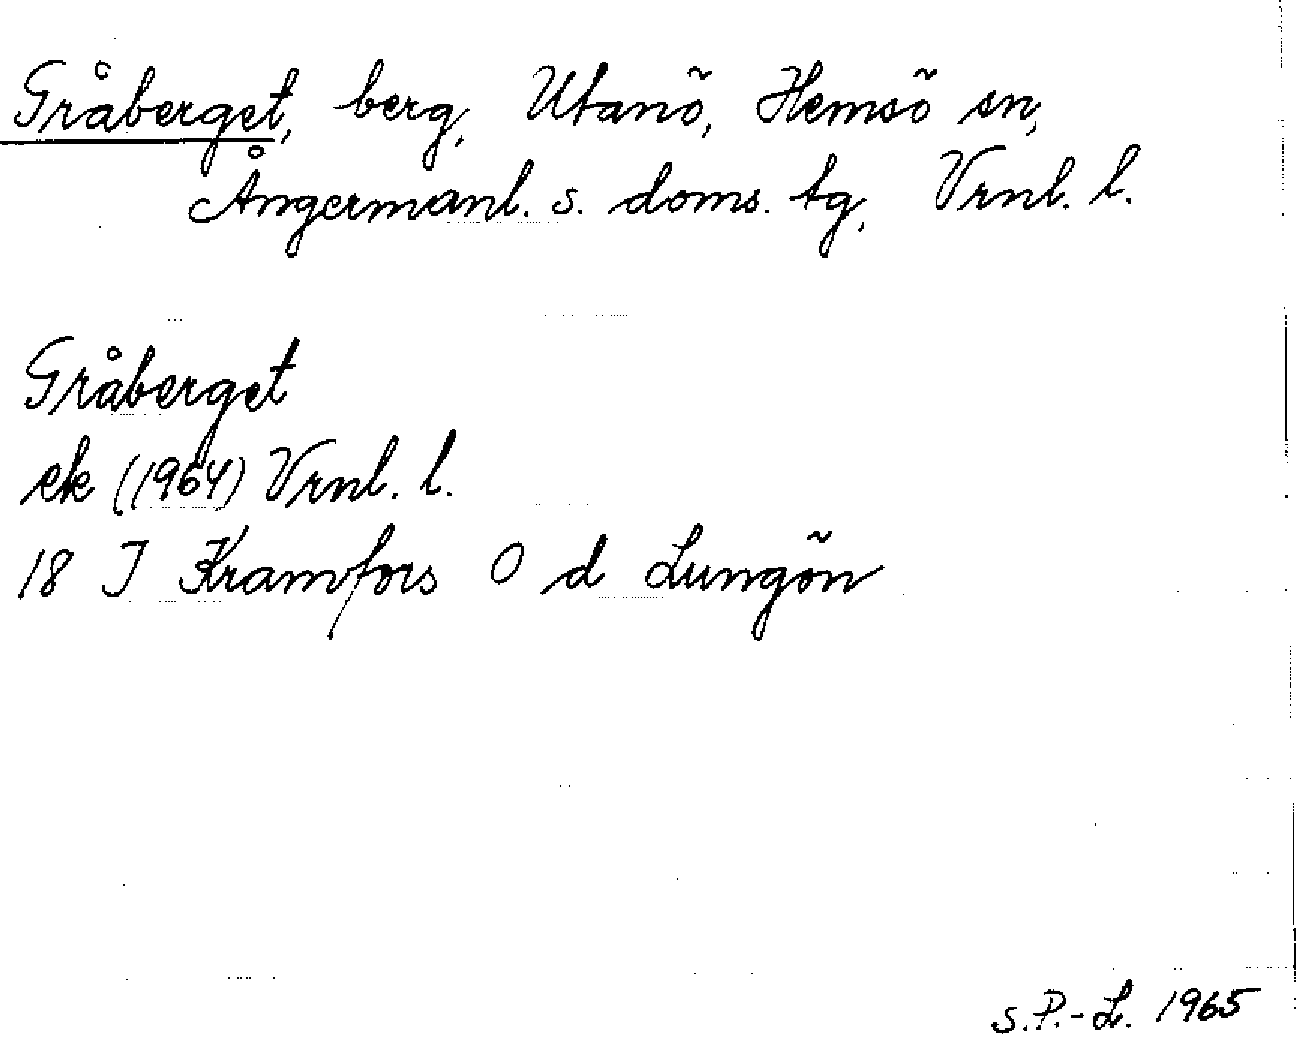 Gråberget, berg, Utanö, Hemsö sn,
Ångermanl. s. doms. tg, Vrnl. l.
Gråberget
ek (1964) Vrnl. l.
18 I Kramfors O d Lungön
S.P.-L. 1965